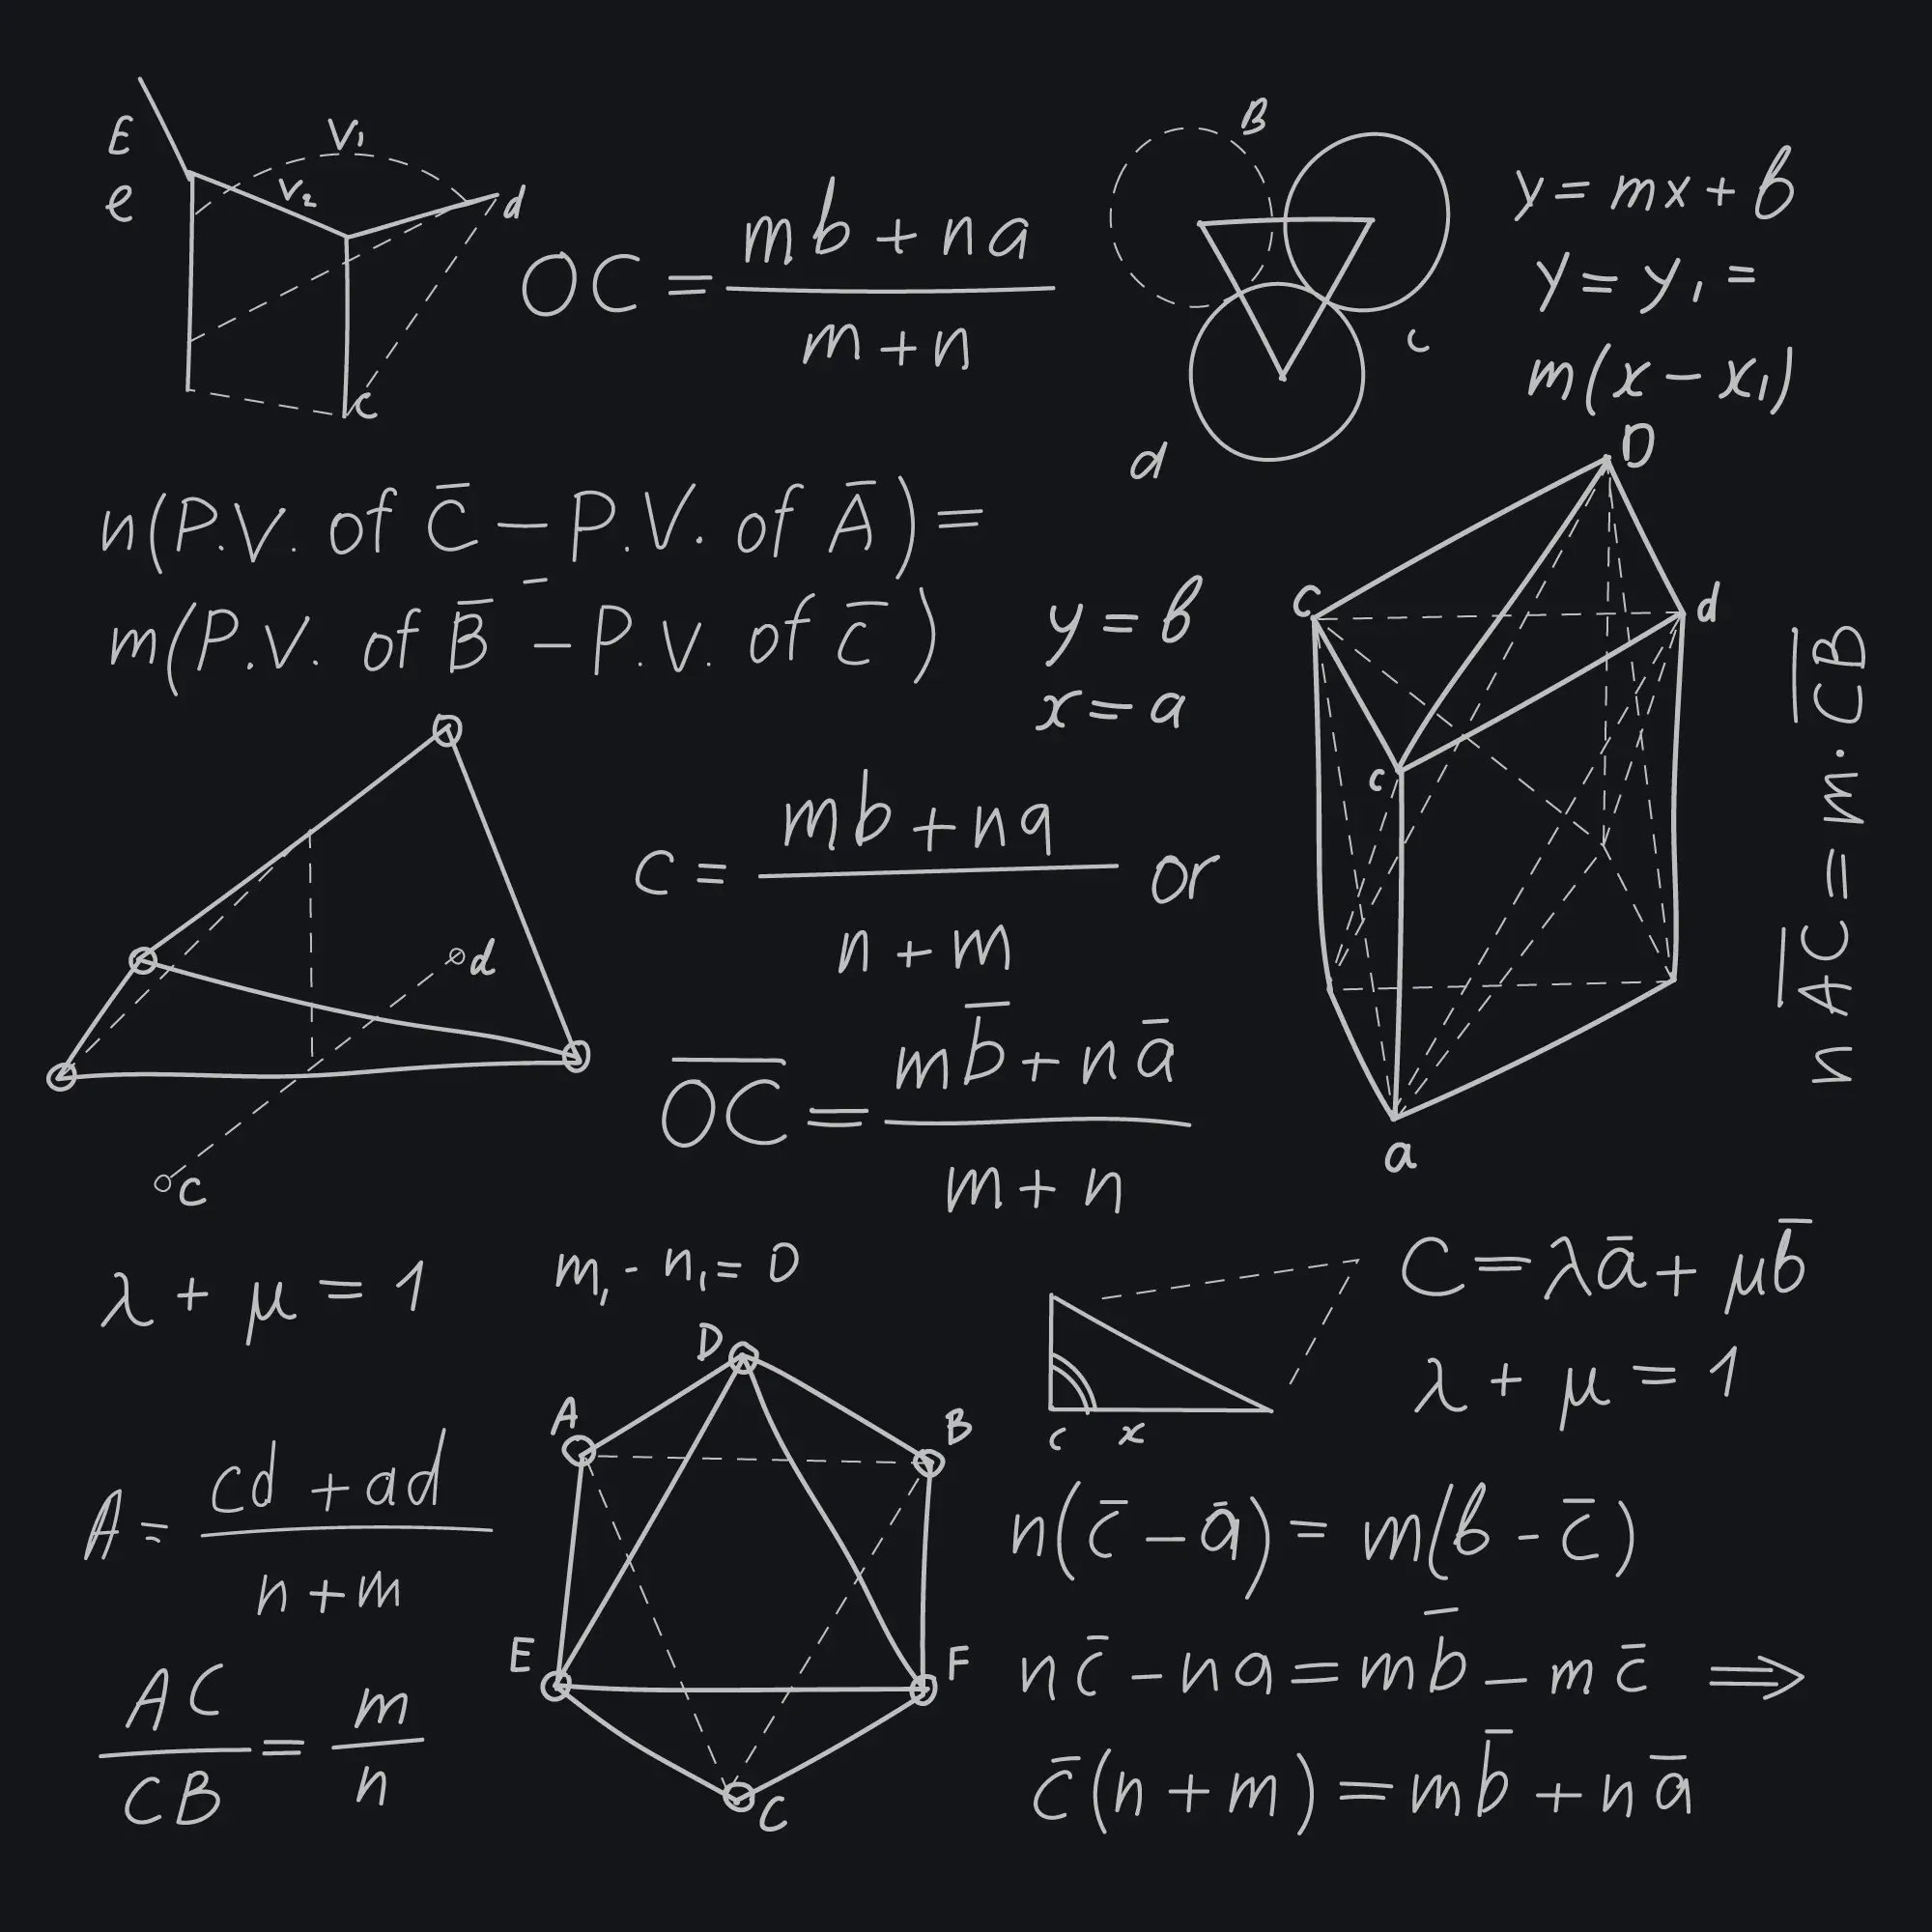 E
e
V₁
V₂
d
c
OC = (mb + na)/(m + n)
B
c
d
y = mx + b
y = y₁ =
m(x − x₁)
n(P.V. of C̅ − P.V. of A̅) =
m(P.V. of B̅ − P.V. of c̅)
y = b
x = a
D
c
d
c
a
n A̅C̅ = m · C̅B̅
d
c
C = (mb + na)/(n + m) or
O̅C̅ = (mb̅ + na̅)/(m + n)
λ + μ = 1
m₁ - n₁ = D
c x
C = λa̅ + μb̅
λ + μ = 1
A = (cd + ad)/(n + m)
AC/CB = m/n
D
A
B
E
F
C
n(c̅ − a̅) = m(b − c̅)
nc̅ − na = mb̅ − mc̅ ⇒
c̅(n + m) = mb̅ + na̅